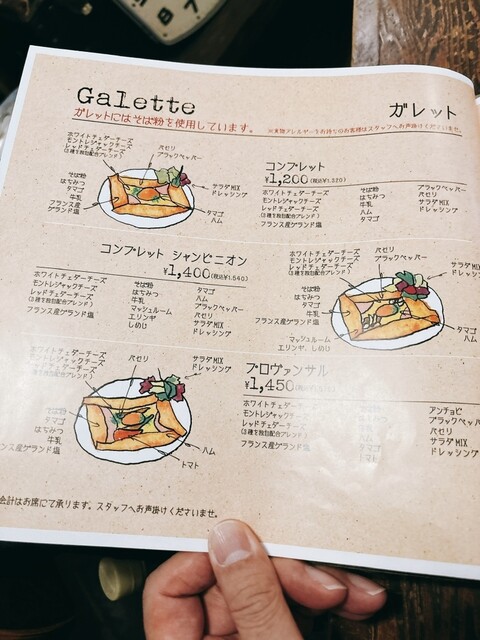 Galette
ガレット
ガレットにはそば粉を使用しています。
ホワイトチェダーチーズ
モントレジャックチーズ
レッドチェダーチーズ
(3種を独自配合ブレンド)
そば粉
はちみつ
タマゴ
牛乳
フランス産
ゲランド塩
パセリ
ブラックペッパー
サラダMIX
ドレッシング
タマゴ
ハム
コンプレット
¥1,200(税込¥1,320)
ホワイトチェダーチーズ
モントレジャックチーズ
レッドチェダーチーズ
(3種を独自配合ブレンド)
フランス産ゲランド塩
そば粉
はちみつ
牛乳
タマゴ
ハム
ブラックペッパー
パセリ
サラダMIX
ドレッシング
コンプレット シャンピニオン
¥1,400(税込¥1,540)
ホワイトチェダーチーズ
モントレジャックチーズ
レッドチェダーチーズ
(3種を独自配合ブレンド)
フランス産ゲランド塩
そば粉
はちみつ
牛乳
マッシュルーム
エリンギ
しめじ
タマゴ
ハム
ブラックペッパー
パセリ
サラダMIX
ドレッシング
ホワイトチェダーチーズ
モントレジャックチーズ
レッドチェダーチーズ
(3種を独自配合ブレンド)
そば粉
はちみつ
タマゴ
牛乳
フランス産ゲランド塩
マッシュルーム
エリンギ、しめじ
パセリ
ブラックペッパー
サラダM
ドレッシ
タマゴ
ハム
ホワイトチェダーチーズ
モントレジャックチーズ
レッドチェダーチーズ
(3種を独自配合ブレンド)
そば粉
タマゴ
はちみつ
牛乳
ンス産ゲランド塩
パセリ
サラダMIX
ドレッシング
ハム
トマト
プロヴァンサル
¥1,450
ホワイトチェダーチーズ
モントレジャックチーズ
レッドチェダーチーズ
(3種を独自配合ブレンド)
フランス産ゲランド塩
トマト
アンチョビ
ブラックペッパー
パセリ
サラダMIX
ドレッシング
会計はお席にて承ります。スタッフへお声掛けくださいませ。